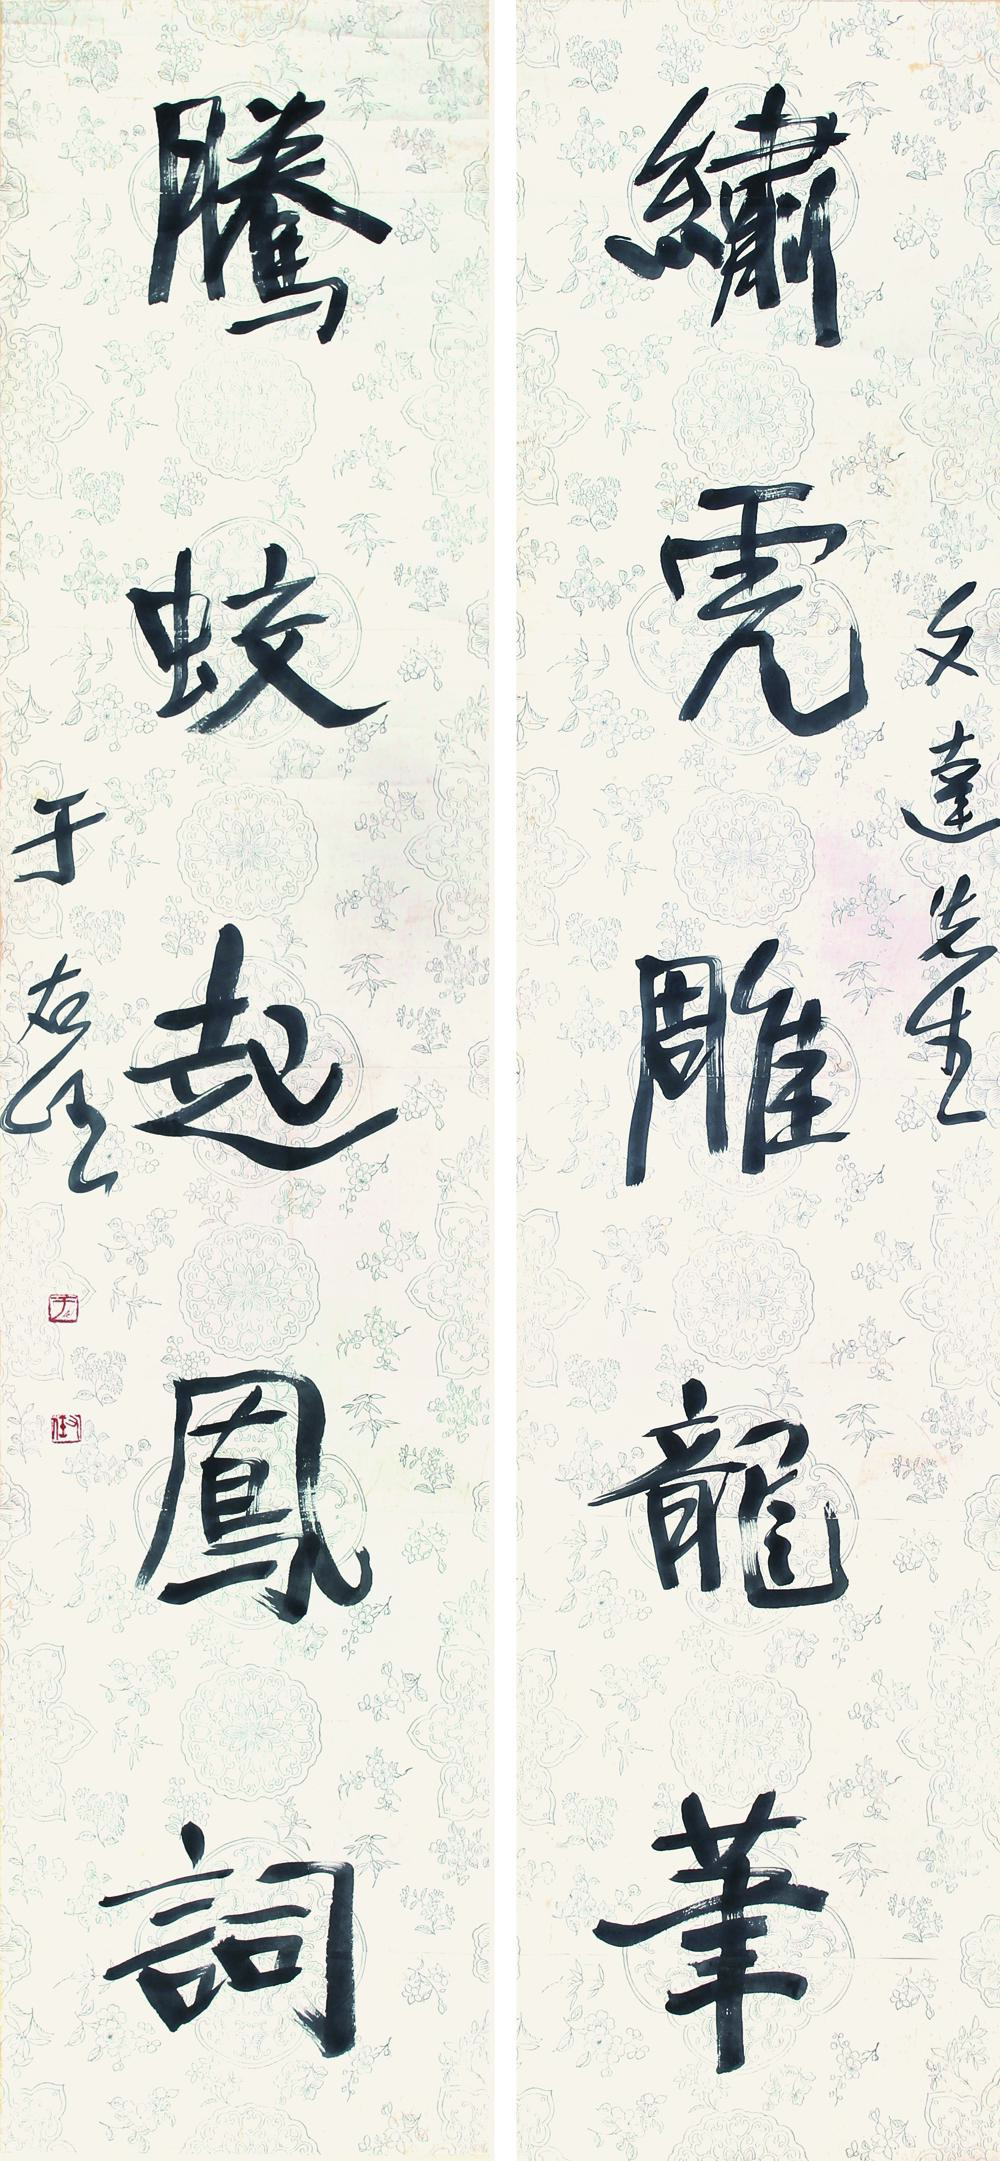 文達先生
繡虎雕龍筆
騰蛟起鳳詞
于右任
于
右任